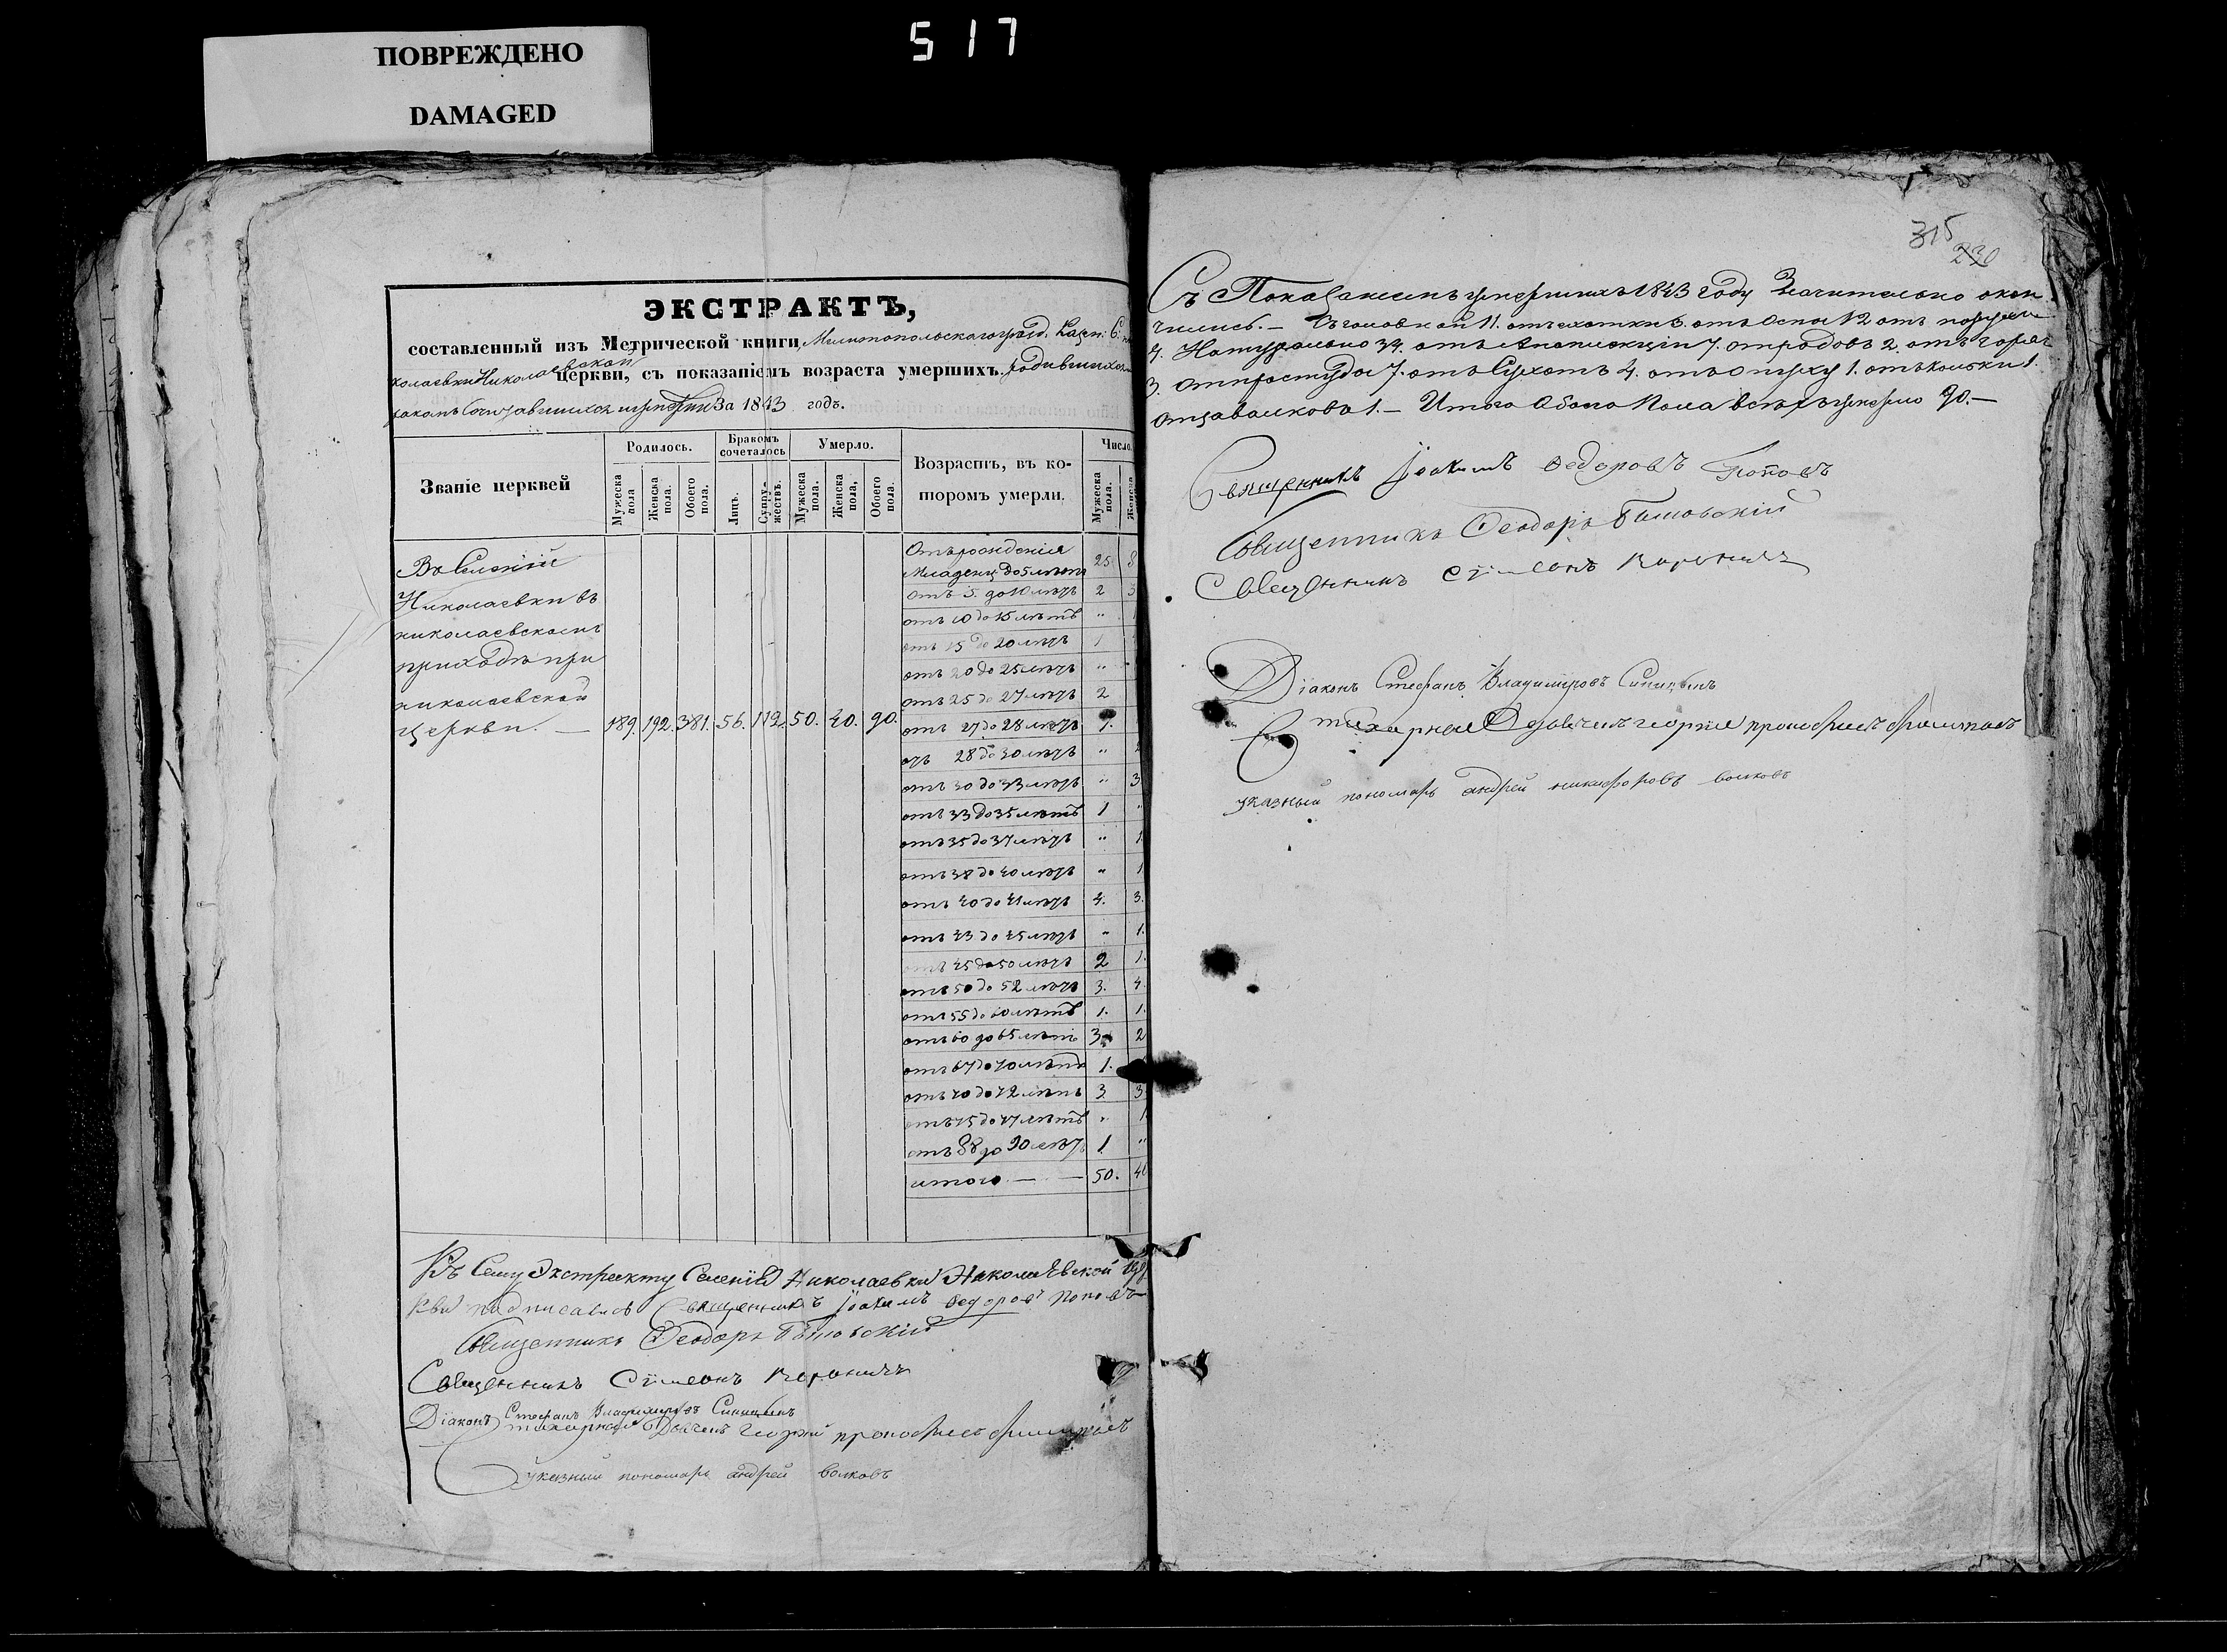 517
ПОВРЕЖДЕНО
DAMAGED
ЭКСТРАКТЪ,
составленный изъ Метрической книги Мелитопольскаго
колаевки Николаевской церкви, съ показаніемъ возраста умершихъ.
За 1843 годъ.
Званіе церквей
Родилось.
Бракомъ сочеталось
Умерло.
Возрастъ, въ ко-
торомъ умерли.
Число
Мужеска пола
Женска пола.
Обоего пола.
Лицъ.
Супру-жествъ.
Мужеска пола.
Женска пола,
Обоего пола.
Мужеска пола.
Женска
Въ Селеніи
Николаевки въ
николаевскомъ
приходѣ при
николаевской
церкви. — 189. 192. 381. 56. 112. 50. 40. 90.
Отъ рожденія
Младенц. до 5 лѣтъ 25 8
отъ 5. до 10 лѣтъ 2 3
отъ 10 до 15 лѣтъ „ 1
отъ 15 до 20 лѣтъ 1
отъ 20 до 25 лѣтъ „
отъ 25 до 27 лѣтъ 2
отъ 27 до 28 лѣтъ 1.
отъ 28 до 30 лѣтъ „
отъ 30 до 33 лѣтъ „ 3
отъ 33 до 35 лѣтъ 1 „
отъ 35 до 37 лѣтъ „ 1
отъ 38 до 40 лѣтъ „ 1
отъ 40 до 41 лѣтъ 4. 3.
отъ 43 до 45 лѣтъ „ 1.
отъ 45 до 50 лѣтъ 2 1.
отъ 50 до 52 лѣтъ 3. 4.
отъ 55 до 60 лѣтъ 1. 1.
отъ 60 до 65 лѣтъ 3 2
отъ 67 до 70 лѣтъ 1.
отъ 70 до 72 лѣтъ 3 3
отъ 75 до 77 лѣтъ „ 1
отъ 88 до 90 лѣтъ 1 „
итого — 50. 40
Къ Сему Экстракту Селенія Николаевки Николаевской цер
кви подписались Священникъ Іоакимъ Ѳедоровъ Поповъ
Священникъ Ѳеодоръ
Священникъ Сѵмеонъ
Діаконъ Стефанъ Владиміровъ Синицынъ
Стихарный Дьячекъ Георгій Прокофьевъ
Указный пономарь андрей волковъ
315
230
Съ Показаніемъ умершихъ 1843 году Значительно окон
чились. — 11. отъ чахотки отъ Оспы 12 отъ
4. Натурально 34. отъ Апоплекціи 7. отъ родовъ 2. отъ горяч
3. отъ простуды 7. отъ Сухотъ 4. отъ опуху 1. отъ колотки 1.
1. — Итого Обоего Пола всѣхъ умерло 90. —
Священникъ Іоакимъ Ѳедоровъ Поповъ
Священникъ Ѳеодоръ
Священникъ Сѵмеонъ
Діаконъ Стефанъ Владиміровъ Синицынъ
Стихарный Дьячекъ георгій прокофьевъ
указный пономарь андрей никифоровъ волковъ